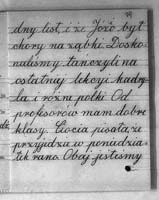 dny list, i że Józio był
chory na ząbki Dosko-
naliśmy tańczyli na
ostatniej lekcyi kadry-
la i różne polki Od
profesorów mam dobre
klasy. Ciocia pisała, że
przyjadą w poniedzia-
łek rano. Obaj jesteśmy